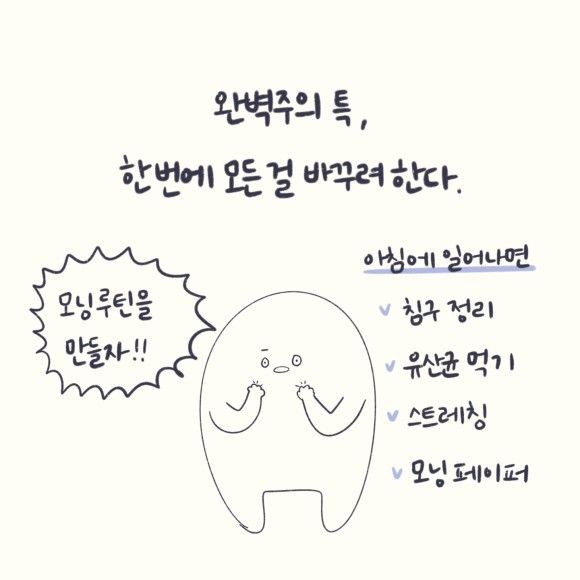 완벽주의 특,
한번에 모든 걸 바꾸려 한다.
모닝루틴을
만들자!!
아침에 일어나면
침구 정리
유산균 먹기
스트레칭
모닝 페이퍼